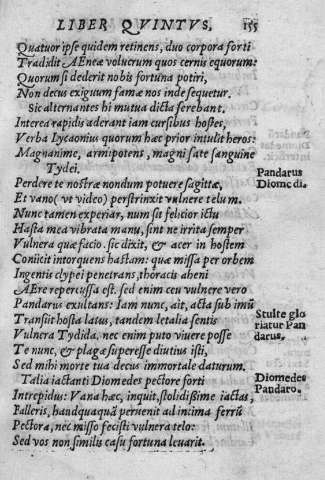 LIBER QVINTVS. 155
Quatuor ipse quidem retinens, duo corpora forti
Tradidit AEneæ volucrum quos cernis equorum:
Quorum si dederit nobis fortuna potiri,
Non decus exiguum famæ nos inde sequetur.
Sic alternantes hi mutua dicta serebant.
Interea rapidis aderant iam cursibus hostes,
Verba Lycaonius quorum hæc prior intulit heros:
Magnanime, armipotens, magni sate sanguine
Tydei.
Pandarus
Diomedi.
Perdere te nostræ nondum potuere sagittæ,
Et vano (vt video) perstrinxit vulnere telum.
Nunc tamen experiar, num sit felicior ictu
Hasta mea vibrata manu, sint ne irrita semper
Vulnera quæ facio. sic dixit, & acer in hostem
Coniicit intorquens hastam: quæ missa per orbem
Ingentis clypei penetrans, thoracis aheni
AEre repercussa est. sed enim ceu vulnere vero
Pandarus exultans: Iam nunc, ait, acta sub imũ
Transiit hasta latus, tandem letalia sentis
Vulnera Tydida, nec enim puto viuere posse
Te nunc, & plagæ superesse diutius isti,
Sed mihi morte tua decus immortale daturum.
Stulte glo
riatur Pan
darus.
Talia iactanti Diomedes pectore forti
Intrepidus: Vana hæc, inquit, stolidißime iactas,
Falleris, haudquaquã peruenit ad intima ferrũ
Pectora, nec misso fecisti vulnera telo:
Sed vos non similis casu fortuna leuarit.
Diomedes
Pandaro.